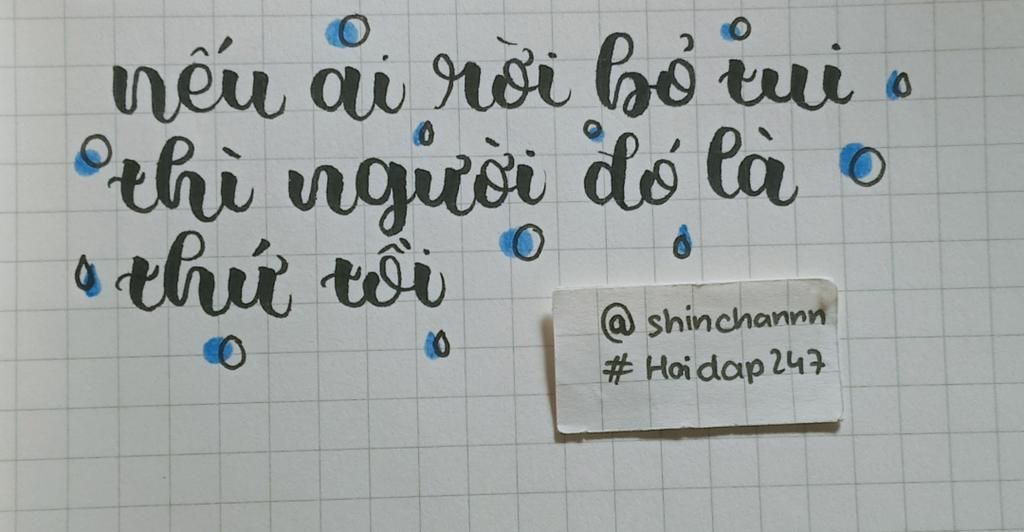 nếu ai rời bỏ tui
thì người đó là
thứ tồi
@shinchannn
#Hoidap247